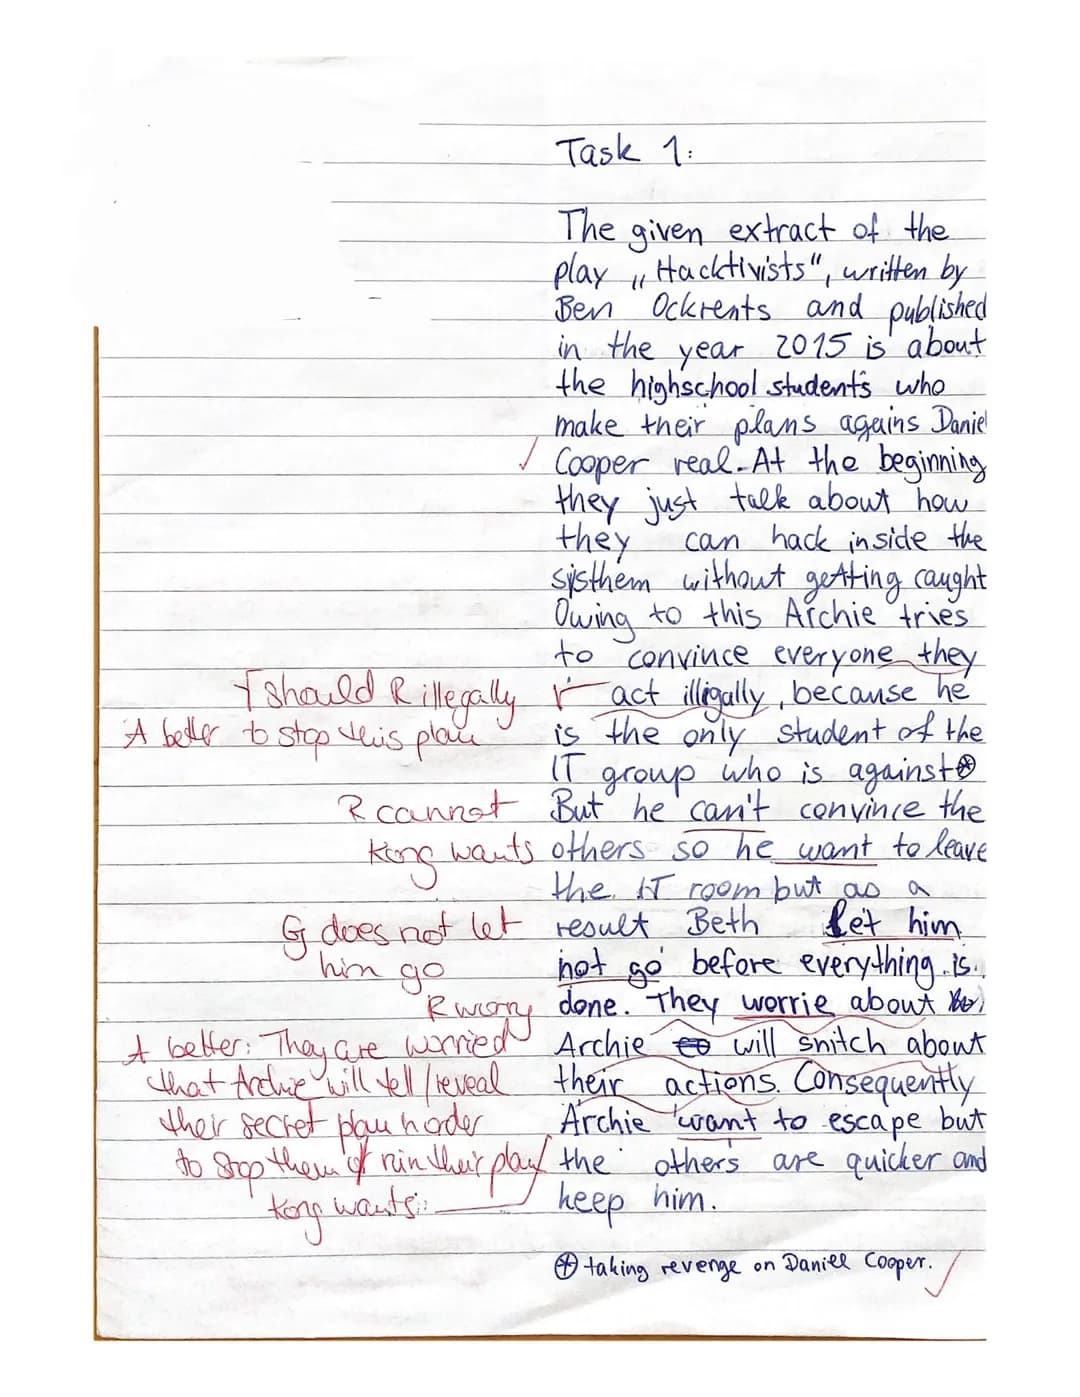 Task 1:
The given extract of the
play „Hacktivists“, written by
Ben Ockrents and published
in the year 2015 is about
the highschool students who
make their plans agains Daniel
✓ Cooper real. At the beginning
they just talk about how
they can hack inside the
systhem without getting caught
Owing to this Archie tries
to convince everyone they
should R illegally act illigally, because he
A better to stop this plan is the only student of the
IT group who is against ⊛
R cannot But he can't convince the
Kong wants others so he want to leave
the IT room but as a
G does not let result Beth let him
him go not go before everything is
R worry done. They worrie about
A better: They are worried Archie will snitch about
that Archie will tell/reveal their actions. Consequently
their secret plan Archie want to escape but
to stop them / ruin their plan the others are quicker and
Kong wants keep him.
⊛ taking revenge on Daniell Cooper. ✓